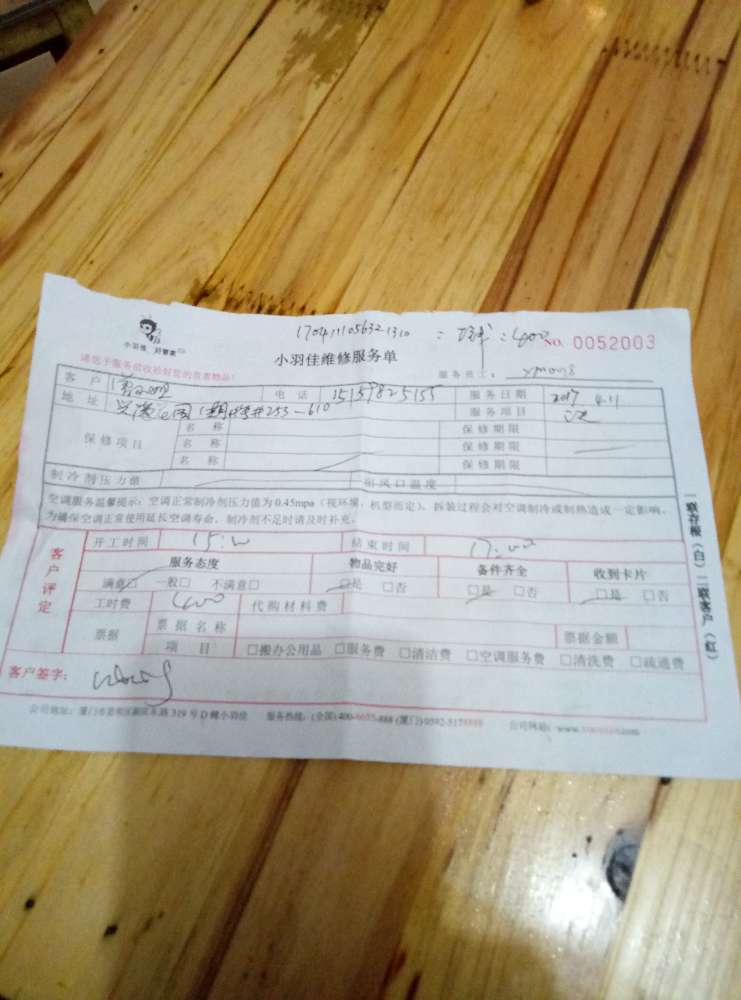 1704111056321310
小羽佳 好管家
NO. 0052003
小羽佳维修服务单
请您于服务前收拾好您的贵重物品!
服务员工: xmon8
客 户 电 话 15159825155 服务日期 2017 4.11
地 址 253-610 服务项目
保修项目 名 称 保修期限
名 称 保修期限
名 称 保修期限
制冷剂压力值 出风口温度
空调服务温馨提示:空调正常制冷剂压力值为0.45mpa(视环境、机型而定)。拆装过程会对空调制冷或制热造成一定影响,
为确保空调正常使用延长空调寿命,制冷剂不足时请及时补充。
一联存根(白) 二联客户(红)
客户评定
开工时间 结束时间 17:00
服务态度 物品完好 备件齐全 收到卡片
满意□ 一般□ 不满意□ □是 □否 □是 □否 □是 □否
工时费 400 代购材料费
票据 票据名称 票据金额
项 目 □搬办公用品 □服务费 □清洁费 □空调服务费 □清洗费 □疏通费
客户签字:
公司地址: 319号D幢小羽佳 服务热线:(全国)400-6655-888 (厦门)0592-5178888 公司网站: